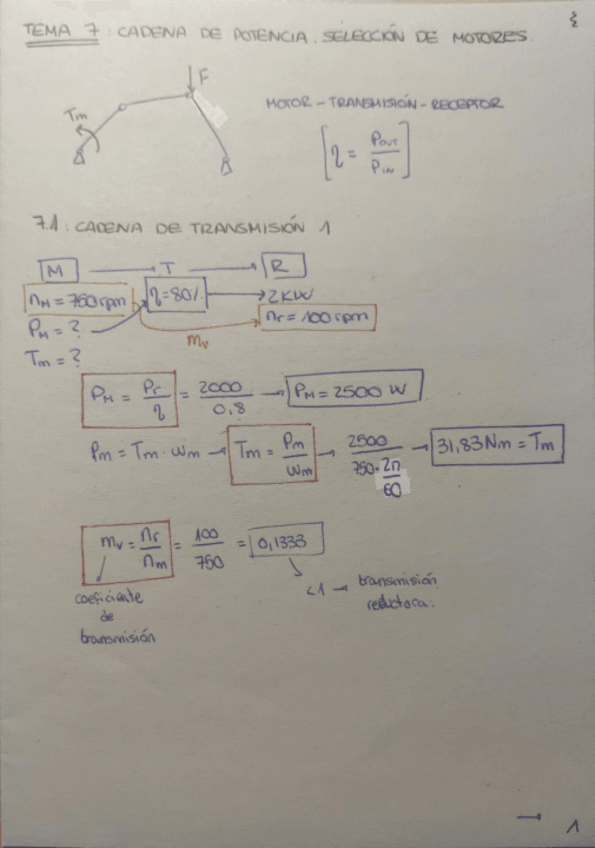 TEMA 7 : CADENA DE POTENCIA. SELECCIÓN DE MOTORES.
F
Tm
MOTOR - TRANSMISIÓN - RECEPTOR
[η = POUT / PIN]
7.1: CADENA DE TRANSMISIÓN 1
M → T → R
nM = 750 rpm η = 80% → 2KW
PM = ? nr = 100 rpm
mv
Tm = ?
PM = Pr / η = 2000 / 0,8 → PM = 2500 W
Pm = Tm · ωm → Tm = Pm / ωm → 2500 / 750 · 2π/60 → 31,83 Nm = Tm
mv = nr / nm = 100 / 750 = 0,1333
coeficiente de transmisión
<1 → transmisión reductora.
→ 1